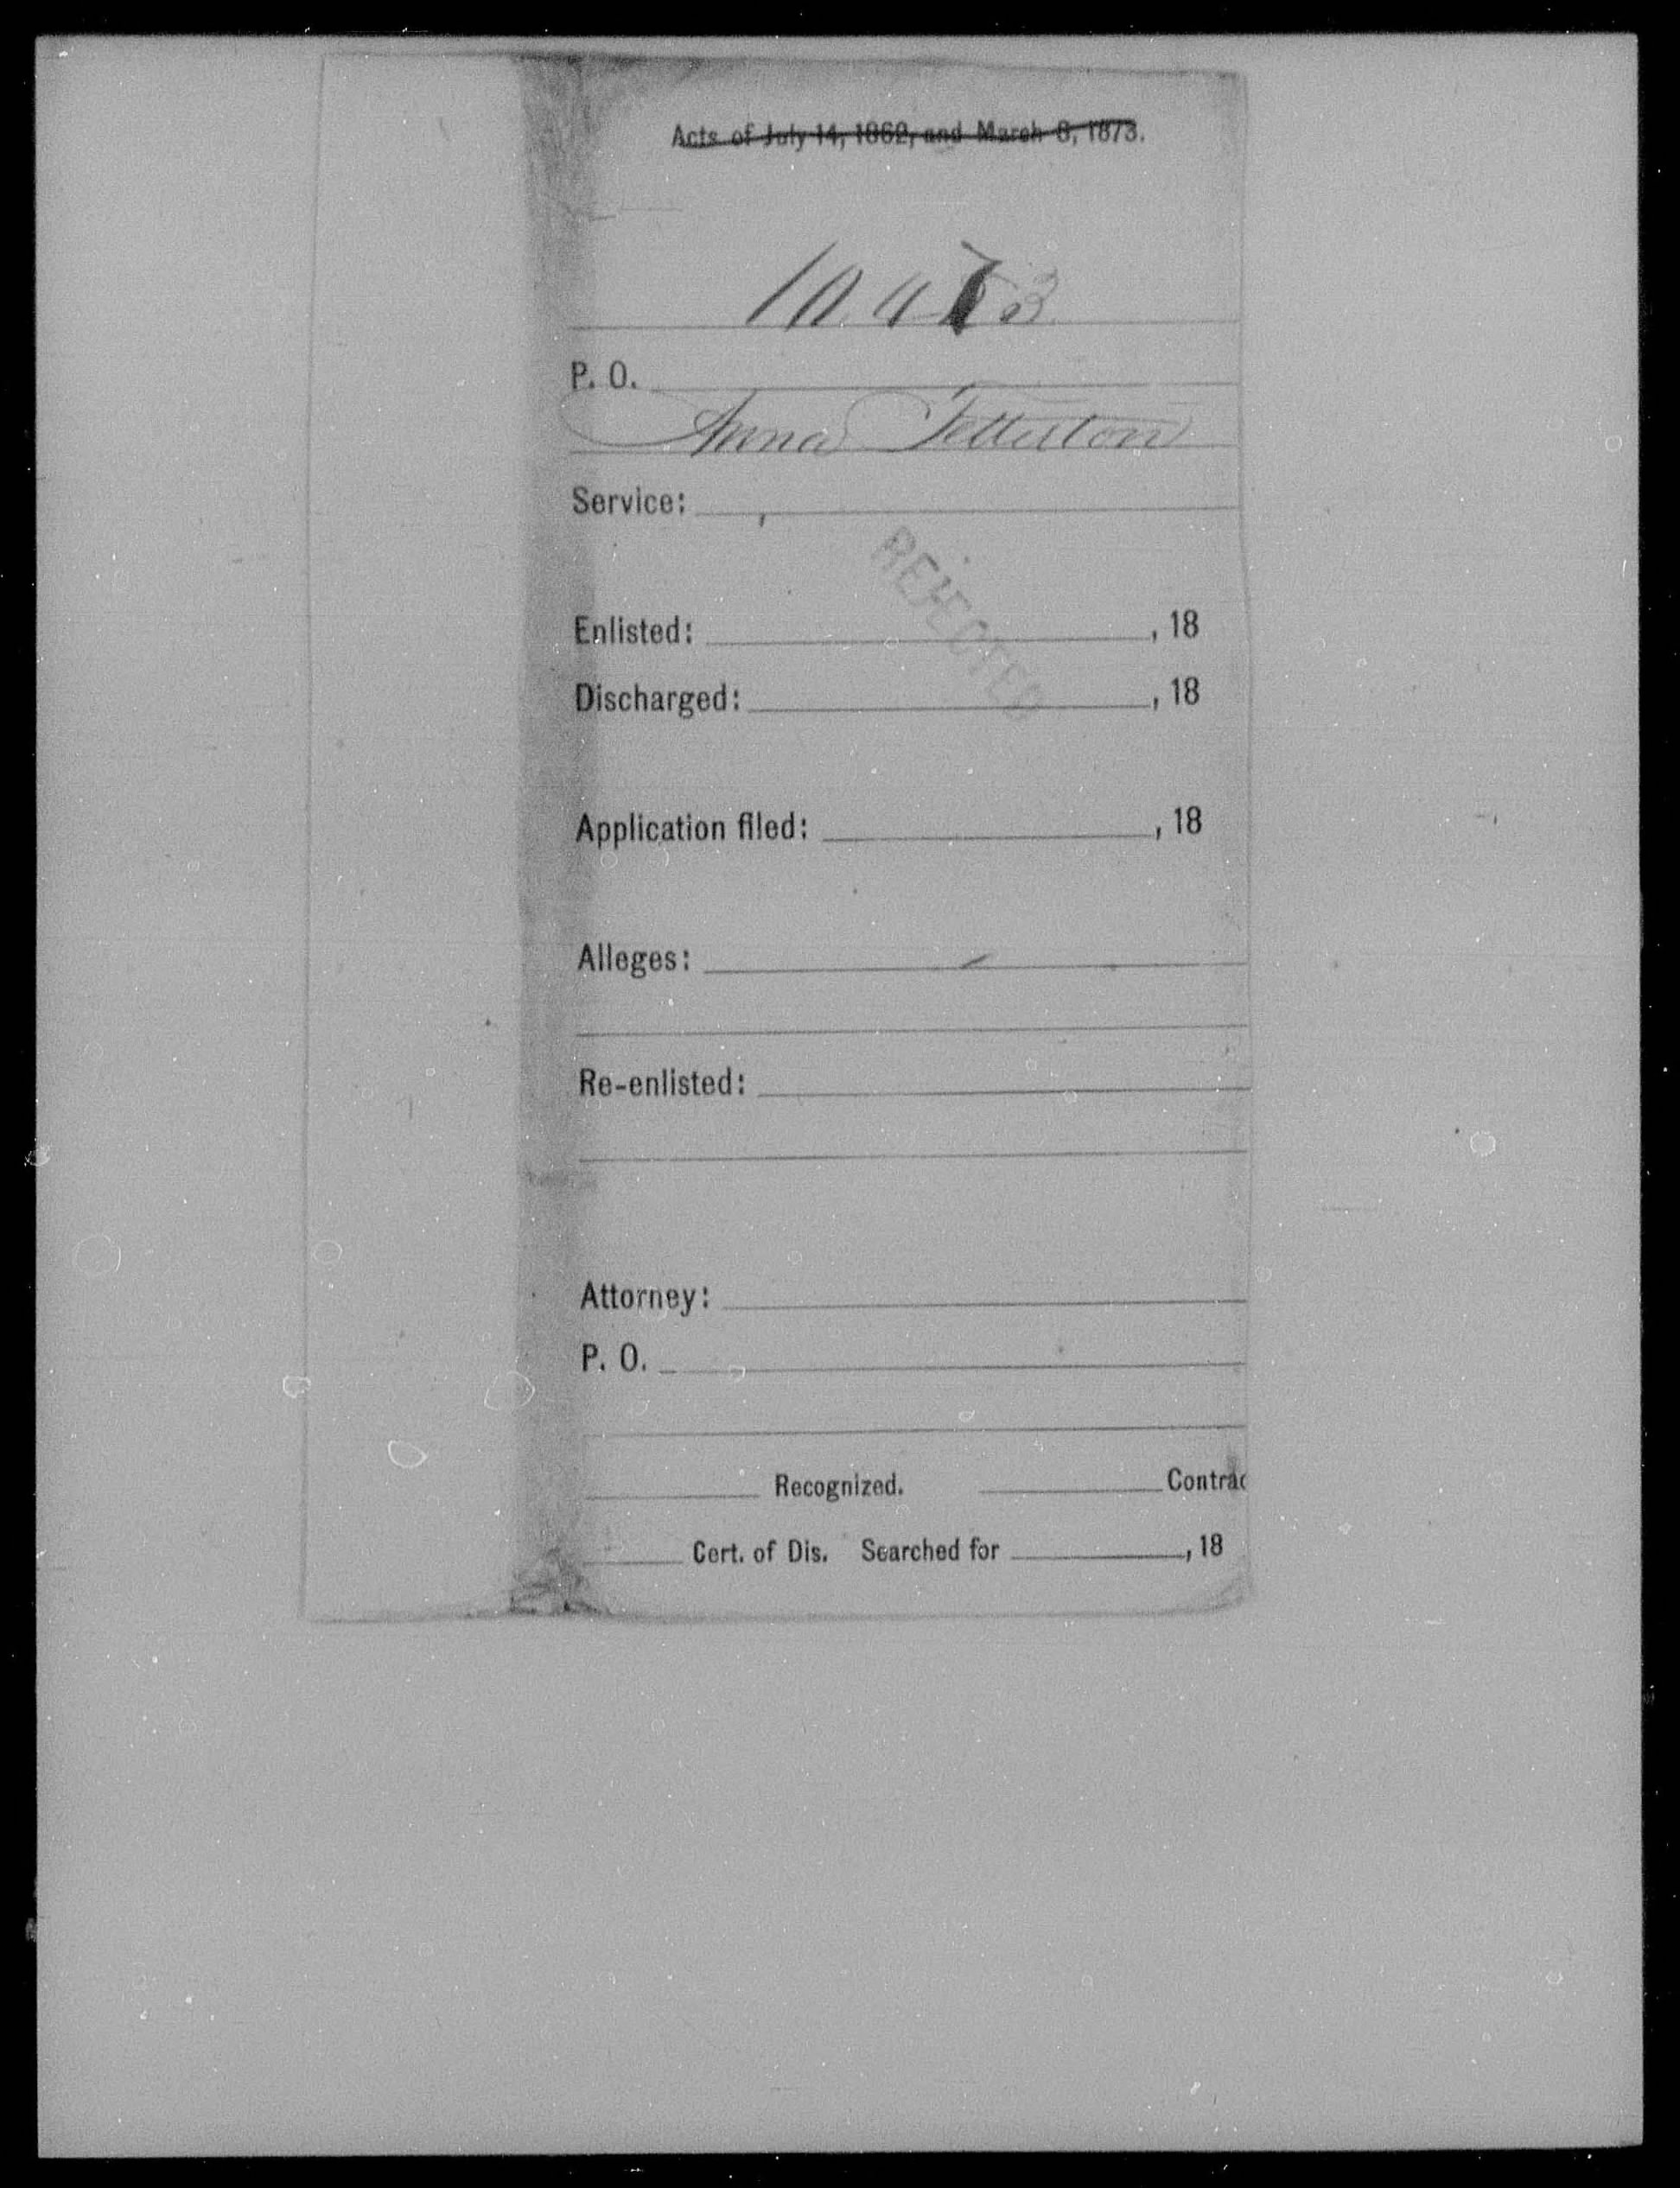 Acts of July 14, 1862, and March 3, 1873.
10.473
P. O.
Anna Fetterton
Service:
REJECTED
Enlisted: , 18
Discharged: , 18
Application filed: , 18
Alleges:
Re-enlisted:
Attorney:
P. O.
Recognized. Contrac
Cert. of Dis. Searched for , 18